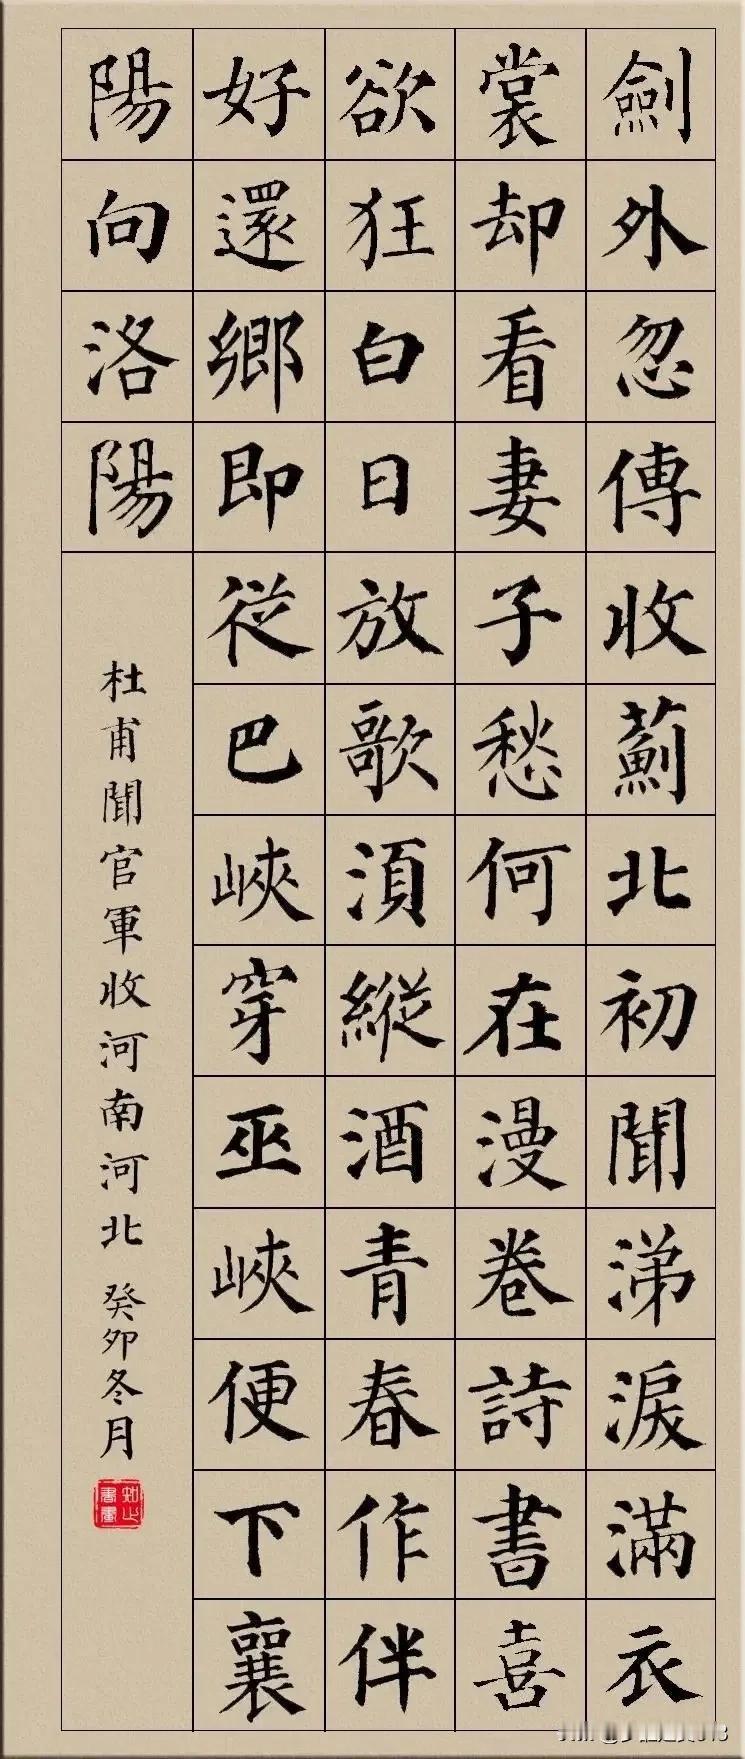 劍外忽傳收薊北初聞涕淚滿衣
裳却看妻子愁何在漫卷詩書喜
欲狂白日放歌須縱酒青春作伴
好還鄉即從巴峽穿巫峽便下襄
陽向洛陽
杜甫聞官軍收河南河北 癸卯冬月
知止書畫